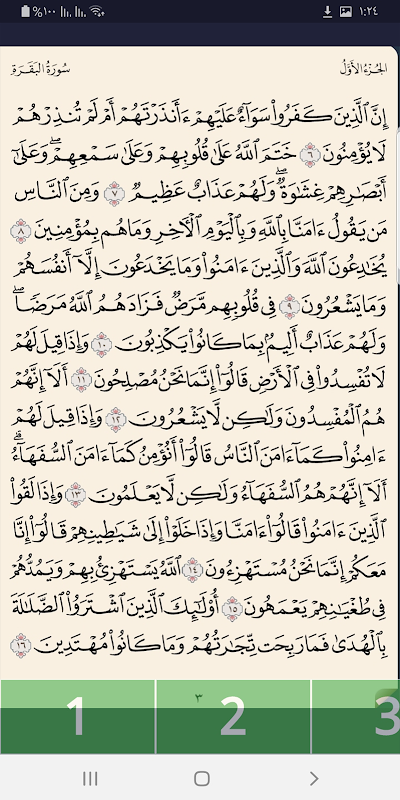 %١٠٠ ١:٢٤
سُورَةُ البَقَرَةِ الجُزءُ الأَوَّلُ
إِنَّ ٱلَّذِينَ كَفَرُوا۟ سَوَآءٌ عَلَيْهِمْ ءَأَنذَرْتَهُمْ أَمْ لَمْ تُنذِرْهُمْ
لَا يُؤْمِنُونَ ٦ خَتَمَ ٱللَّهُ عَلَىٰ قُلُوبِهِمْ وَعَلَىٰ سَمْعِهِمْ ۖ وَعَلَىٰٓ
أَبْصَٰرِهِمْ غِشَٰوَةٌ ۖ وَلَهُمْ عَذَابٌ عَظِيمٌ ٧ وَمِنَ ٱلنَّاسِ
مَن يَقُولُ ءَامَنَّا بِٱللَّهِ وَبِٱلْيَوْمِ ٱلْءَاخِرِ وَمَا هُم بِمُؤْمِنِينَ ٨
يُخَٰدِعُونَ ٱللَّهَ وَٱلَّذِينَ ءَامَنُوا۟ وَمَا يَخْدَعُونَ إِلَّآ أَنفُسَهُمْ
وَمَا يَشْعُرُونَ ٩ فِى قُلُوبِهِم مَّرَضٌ فَزَادَهُمُ ٱللَّهُ مَرَضًا ۖ
وَلَهُمْ عَذَابٌ أَلِيمٌۢ بِمَا كَانُوا۟ يَكْذِبُونَ ١٠ وَإِذَا قِيلَ لَهُمْ
لَا تُفْسِدُوا۟ فِى ٱلْأَرْضِ قَالُوٓا۟ إِنَّمَا نَحْنُ مُصْلِحُونَ ١١ أَلَآ إِنَّهُمْ
هُمُ ٱلْمُفْسِدُونَ وَلَٰكِن لَّا يَشْعُرُونَ ١٢ وَإِذَا قِيلَ لَهُمْ
ءَامِنُوا۟ كَمَآ ءَامَنَ ٱلنَّاسُ قَالُوٓا۟ أَنُؤْمِنُ كَمَآ ءَامَنَ ٱلسُّفَهَآءُ ۗ
أَلَآ إِنَّهُمْ هُمُ ٱلسُّفَهَآءُ وَلَٰكِن لَّا يَعْلَمُونَ ١٣ وَإِذَا لَقُوا۟
ٱلَّذِينَ ءَامَنُوا۟ قَالُوٓا۟ ءَامَنَّا وَإِذَا خَلَوْا۟ إِلَىٰ شَيَٰطِينِهِمْ قَالُوٓا۟ إِنَّا
مَعَكُمْ إِنَّمَا نَحْنُ مُسْتَهْزِءُونَ ١٤ ٱللَّهُ يَسْتَهْزِئُ بِهِمْ وَيَمُدُّهُمْ
فِى طُغْيَٰنِهِمْ يَعْمَهُونَ ١٥ أُو۟لَٰٓئِكَ ٱلَّذِينَ ٱشْتَرَوُا۟ ٱلضَّلَٰلَةَ
بِٱلْهُدَىٰ فَمَا رَبِحَت تِّجَٰرَتُهُمْ وَمَا كَانُوا۟ مُهْتَدِينَ ١٦
٣
1 2 3